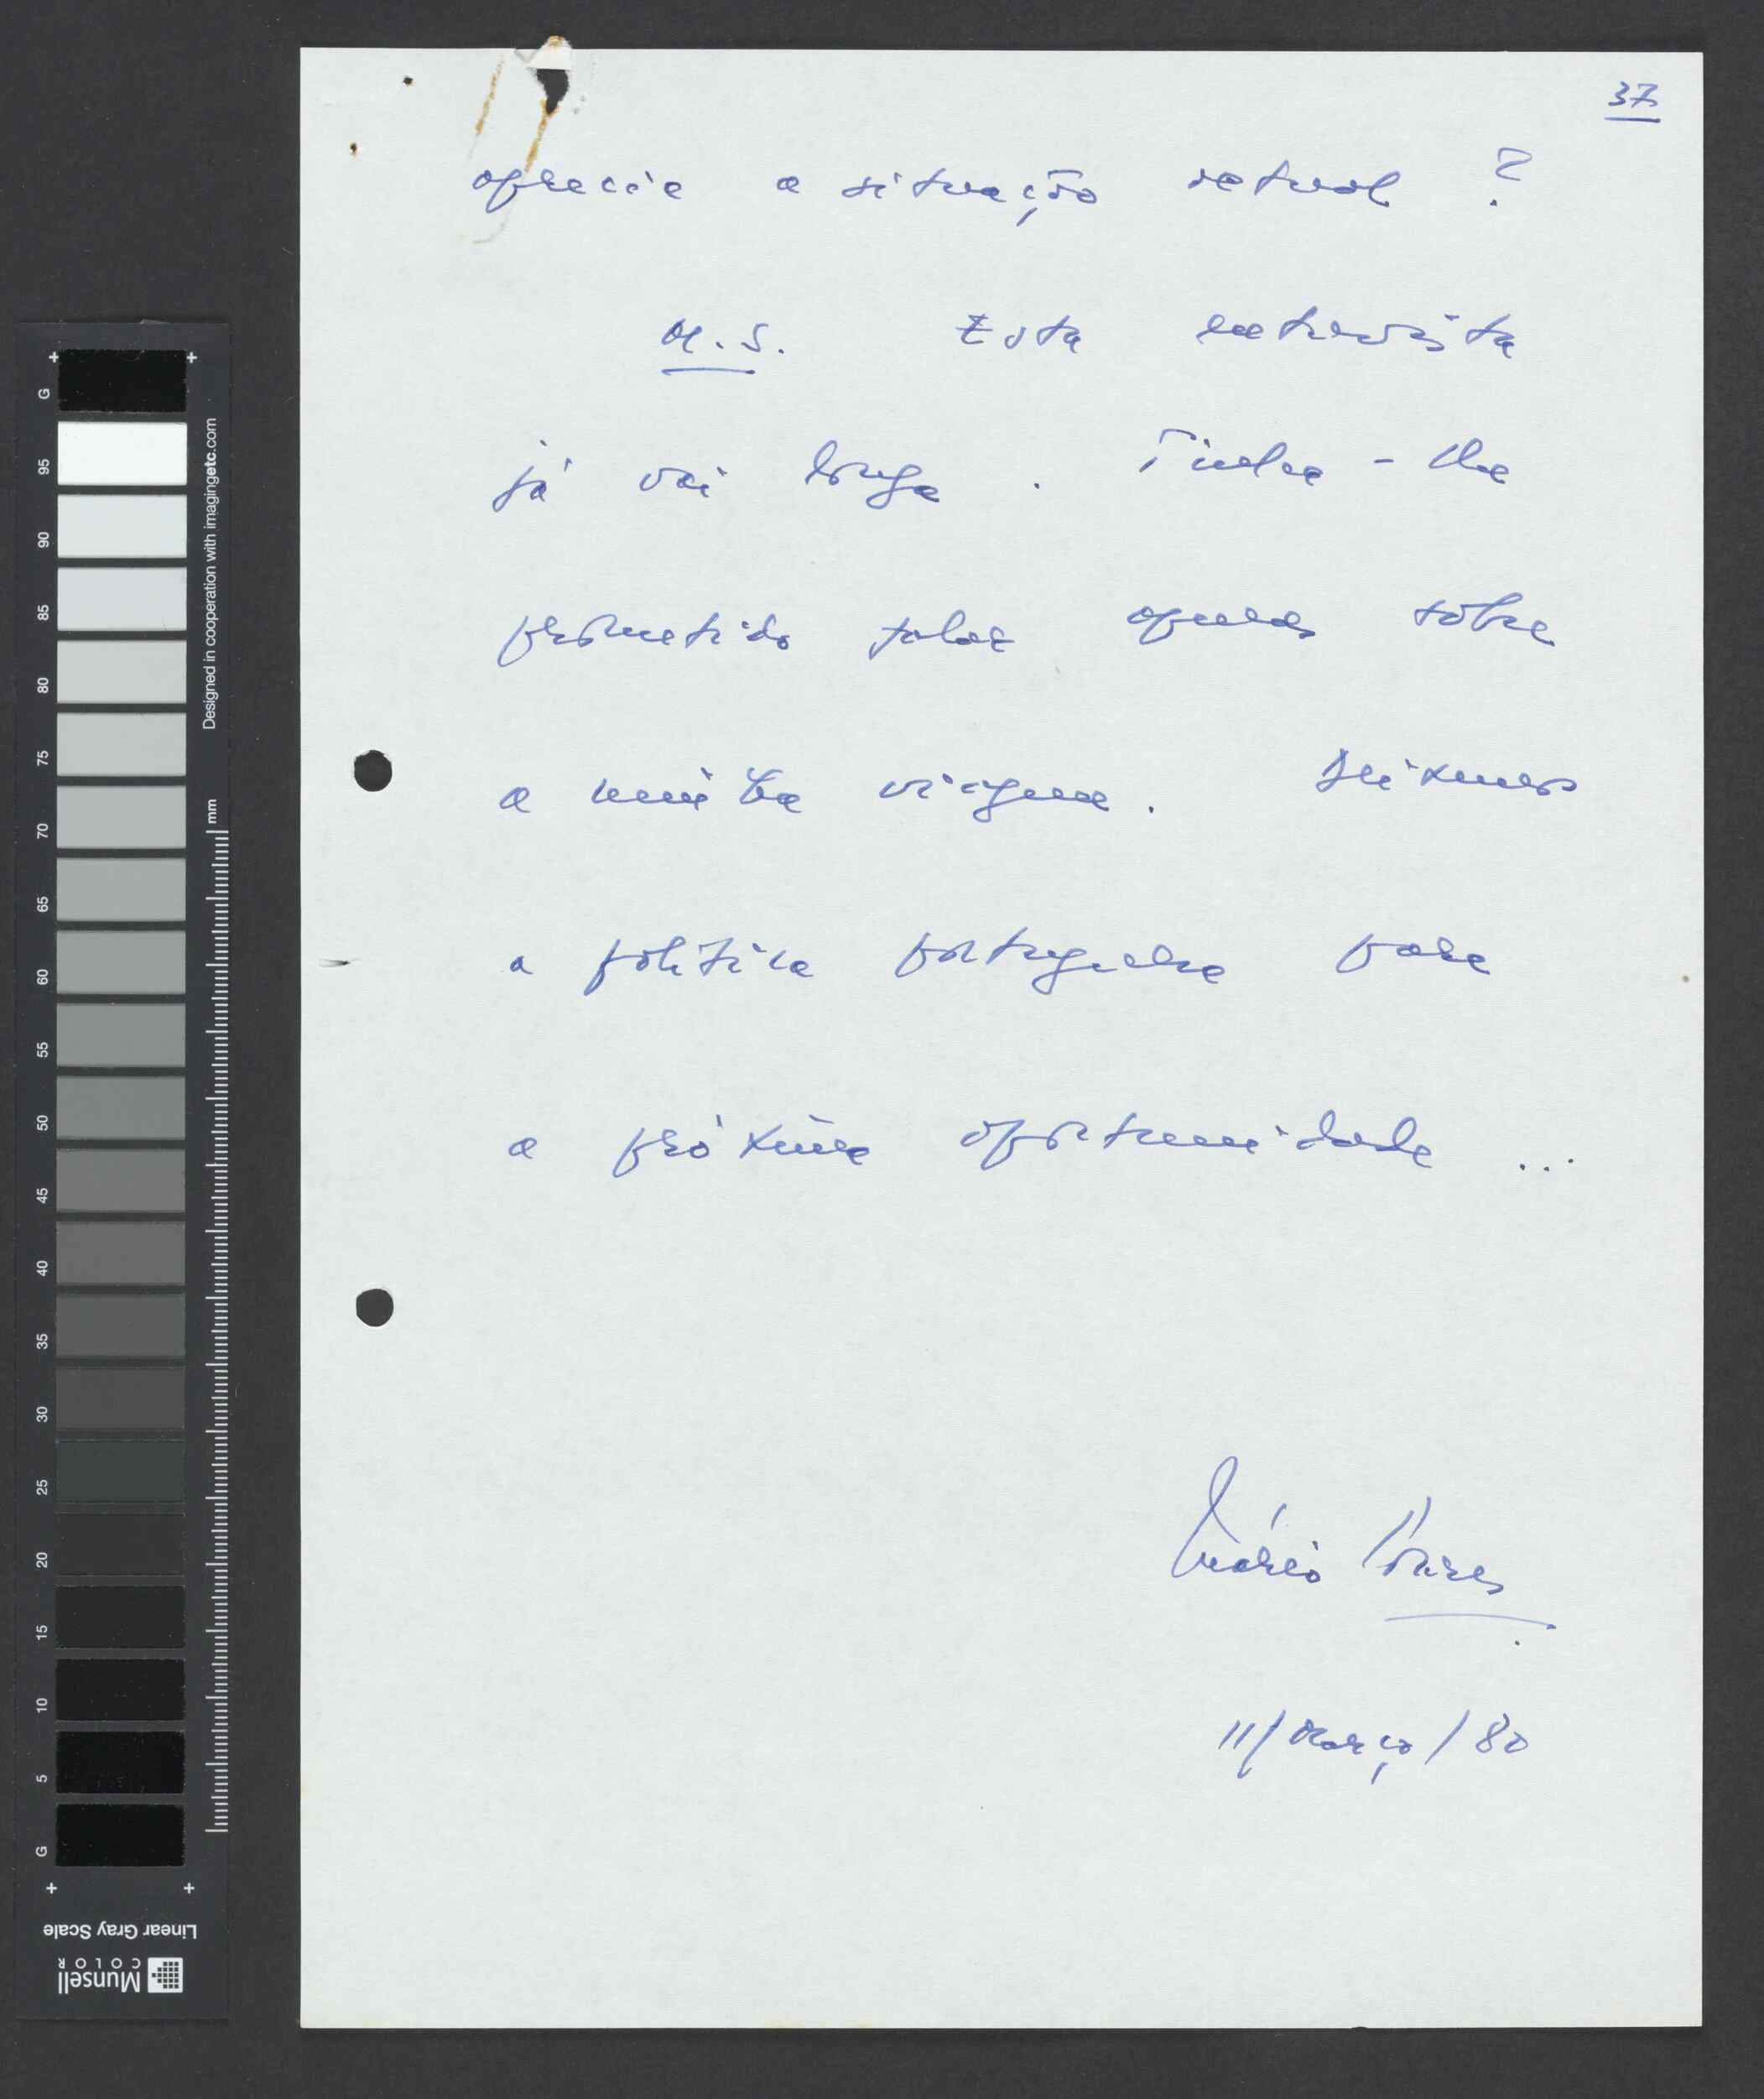 37
aprecia a situação actual ?
M.S. Esta entrevista
já vai longa. Tinha-lhe
prometido falar apenas sobre
a minha viagem. Deixemos
a política portuguesa para
a próxima oportunidade ...
Mário Soares
11/Março/80
G 95 90 85 80 75 70 65 60 55 50 45 40 35 30 25 20 15 10 5 G
Designed in cooperation with imagingetc.com
mm
Linear Gray Scale
Munsell
COLOR